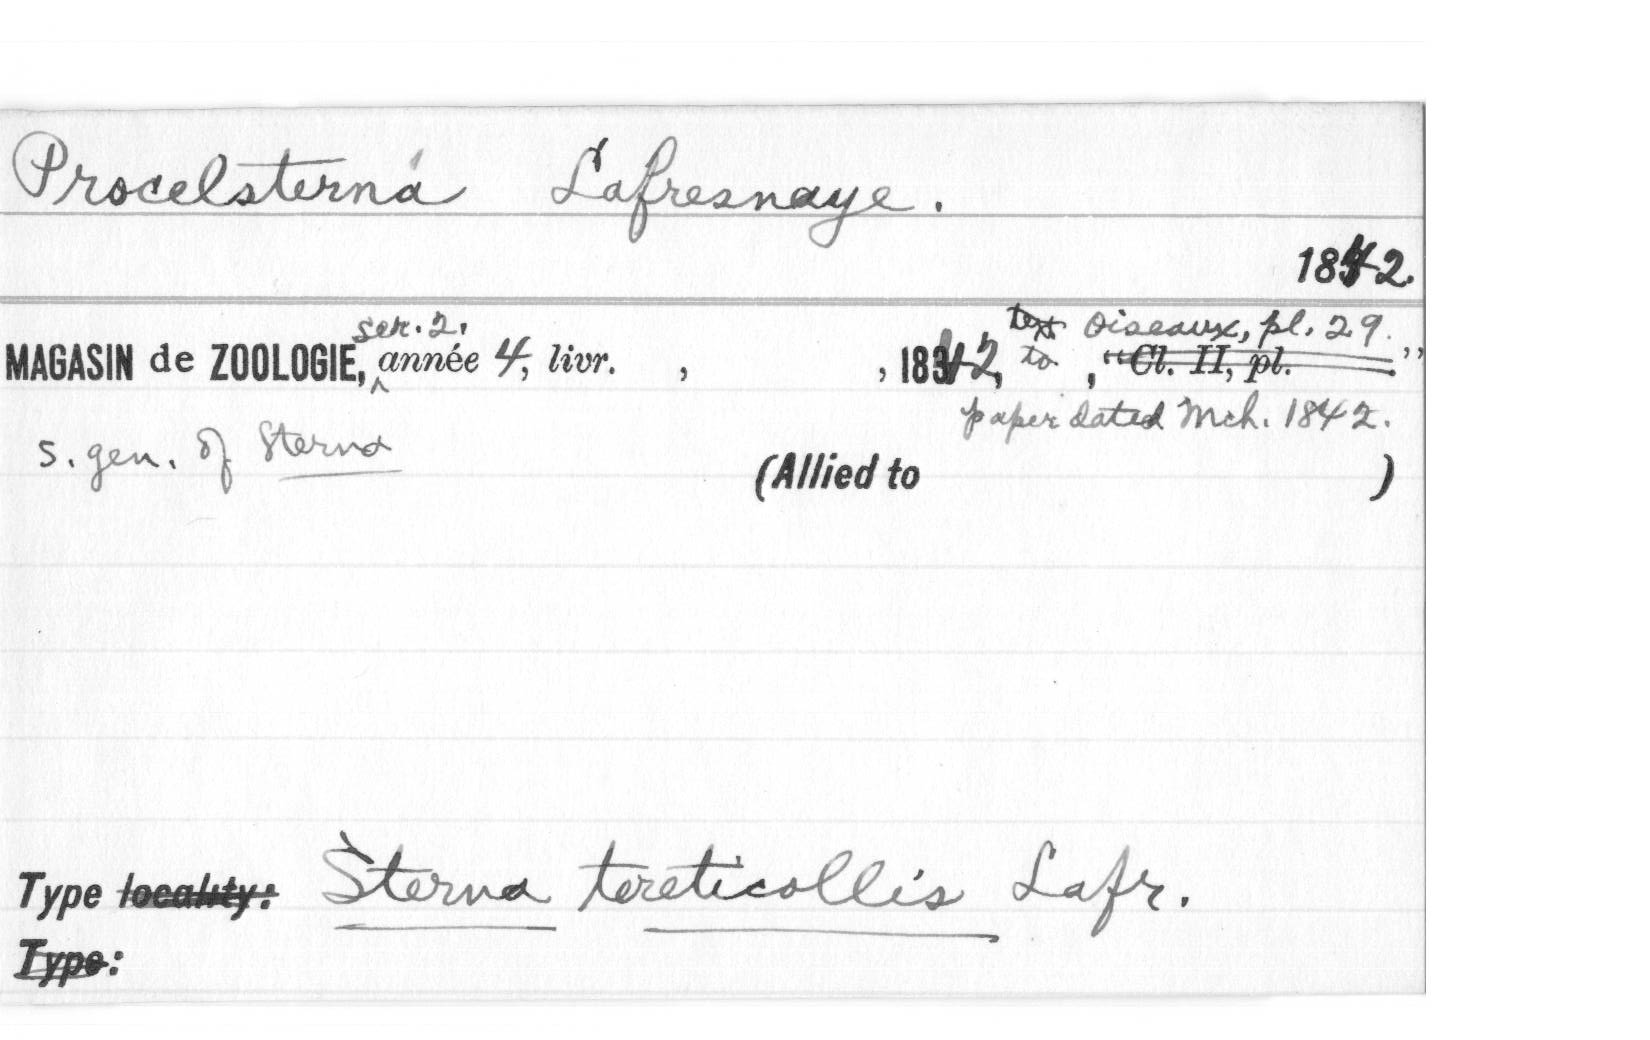 Procelsterna Lafresnaye.
1842.
ser. 2. text Oiseaux, pl. 29.
MAGASIN de ZOOLOGIE, année 4, livr. , , 1842, to , "Cl. II, pl. ."
paper dated Mch. 1842.
s. gen. of Sterna
(Allied to )
Type locality: Sterna tereticollis Lafr.
Type: